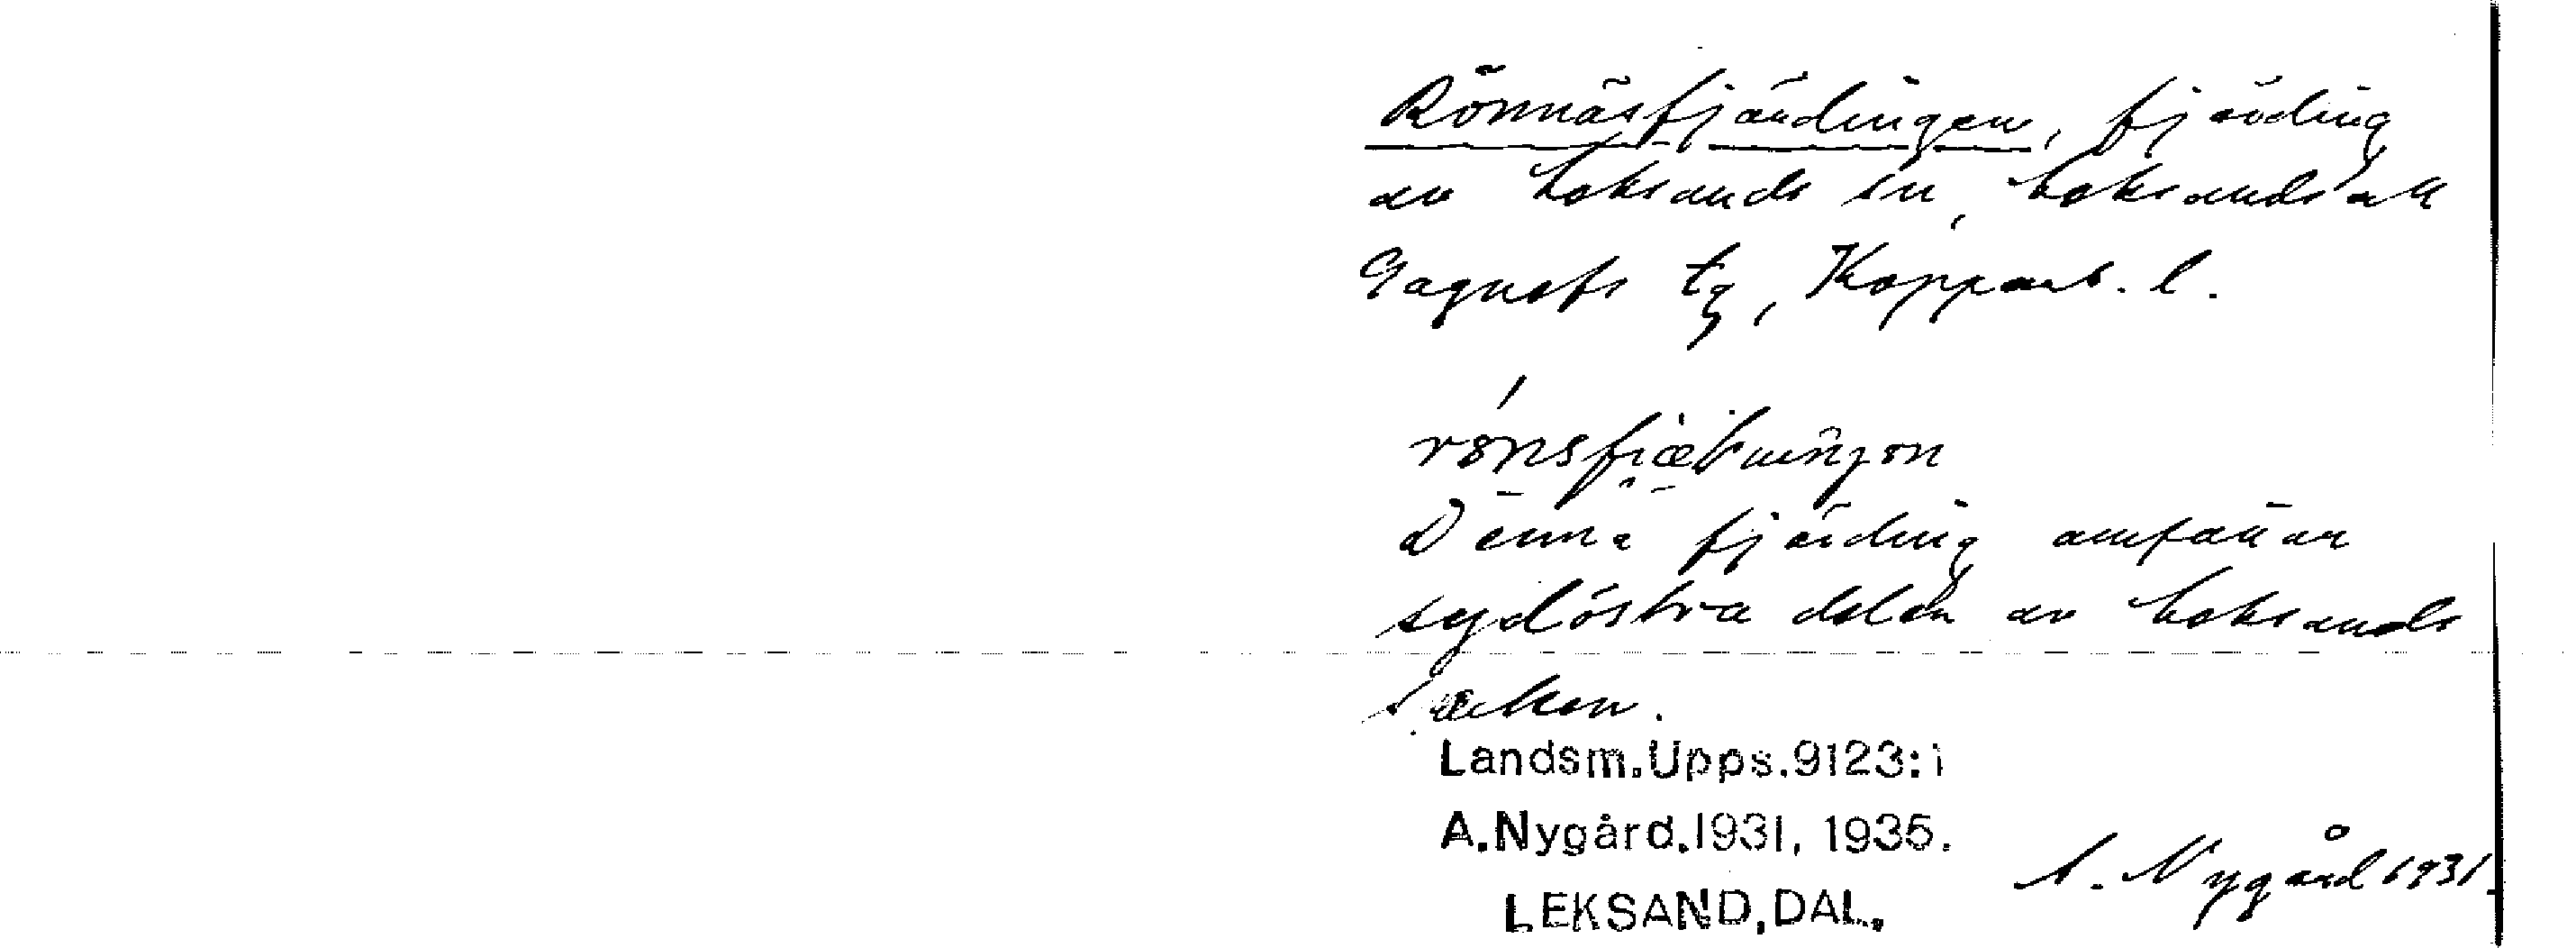 Rönnäsfjärdingen, fjärding
av Leksands sn, Leksands ock
Gagnefs tg, Kopparb. l.
Denna fjärding omfattar
sydöstra delen av Leksands
socken.
Landsm.Upps.9123:1
A.Nygård.1931, 1935.
A. Nygård 1931.
LEKSAND,DAL.